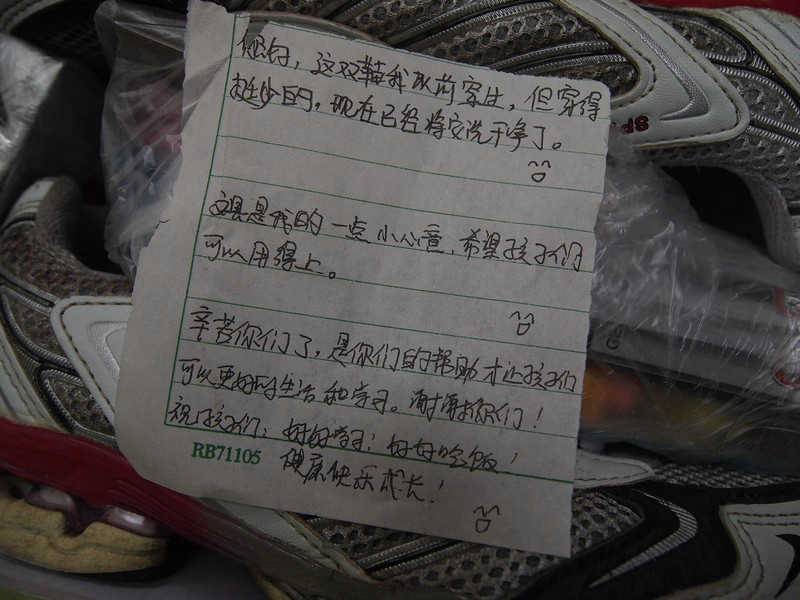 你好，这双鞋我以前穿过，但穿得
挺少的，现在已经将它洗干净了。
这只是我的一点小心意，希望孩子们
可以用得上。
辛苦你们了，是你们的帮助才让孩子们
可以更好的生活和学习。谢谢你们！
祝孩子们：好好学习！好好吃饭！
健康快乐成长！
RB71105
SP